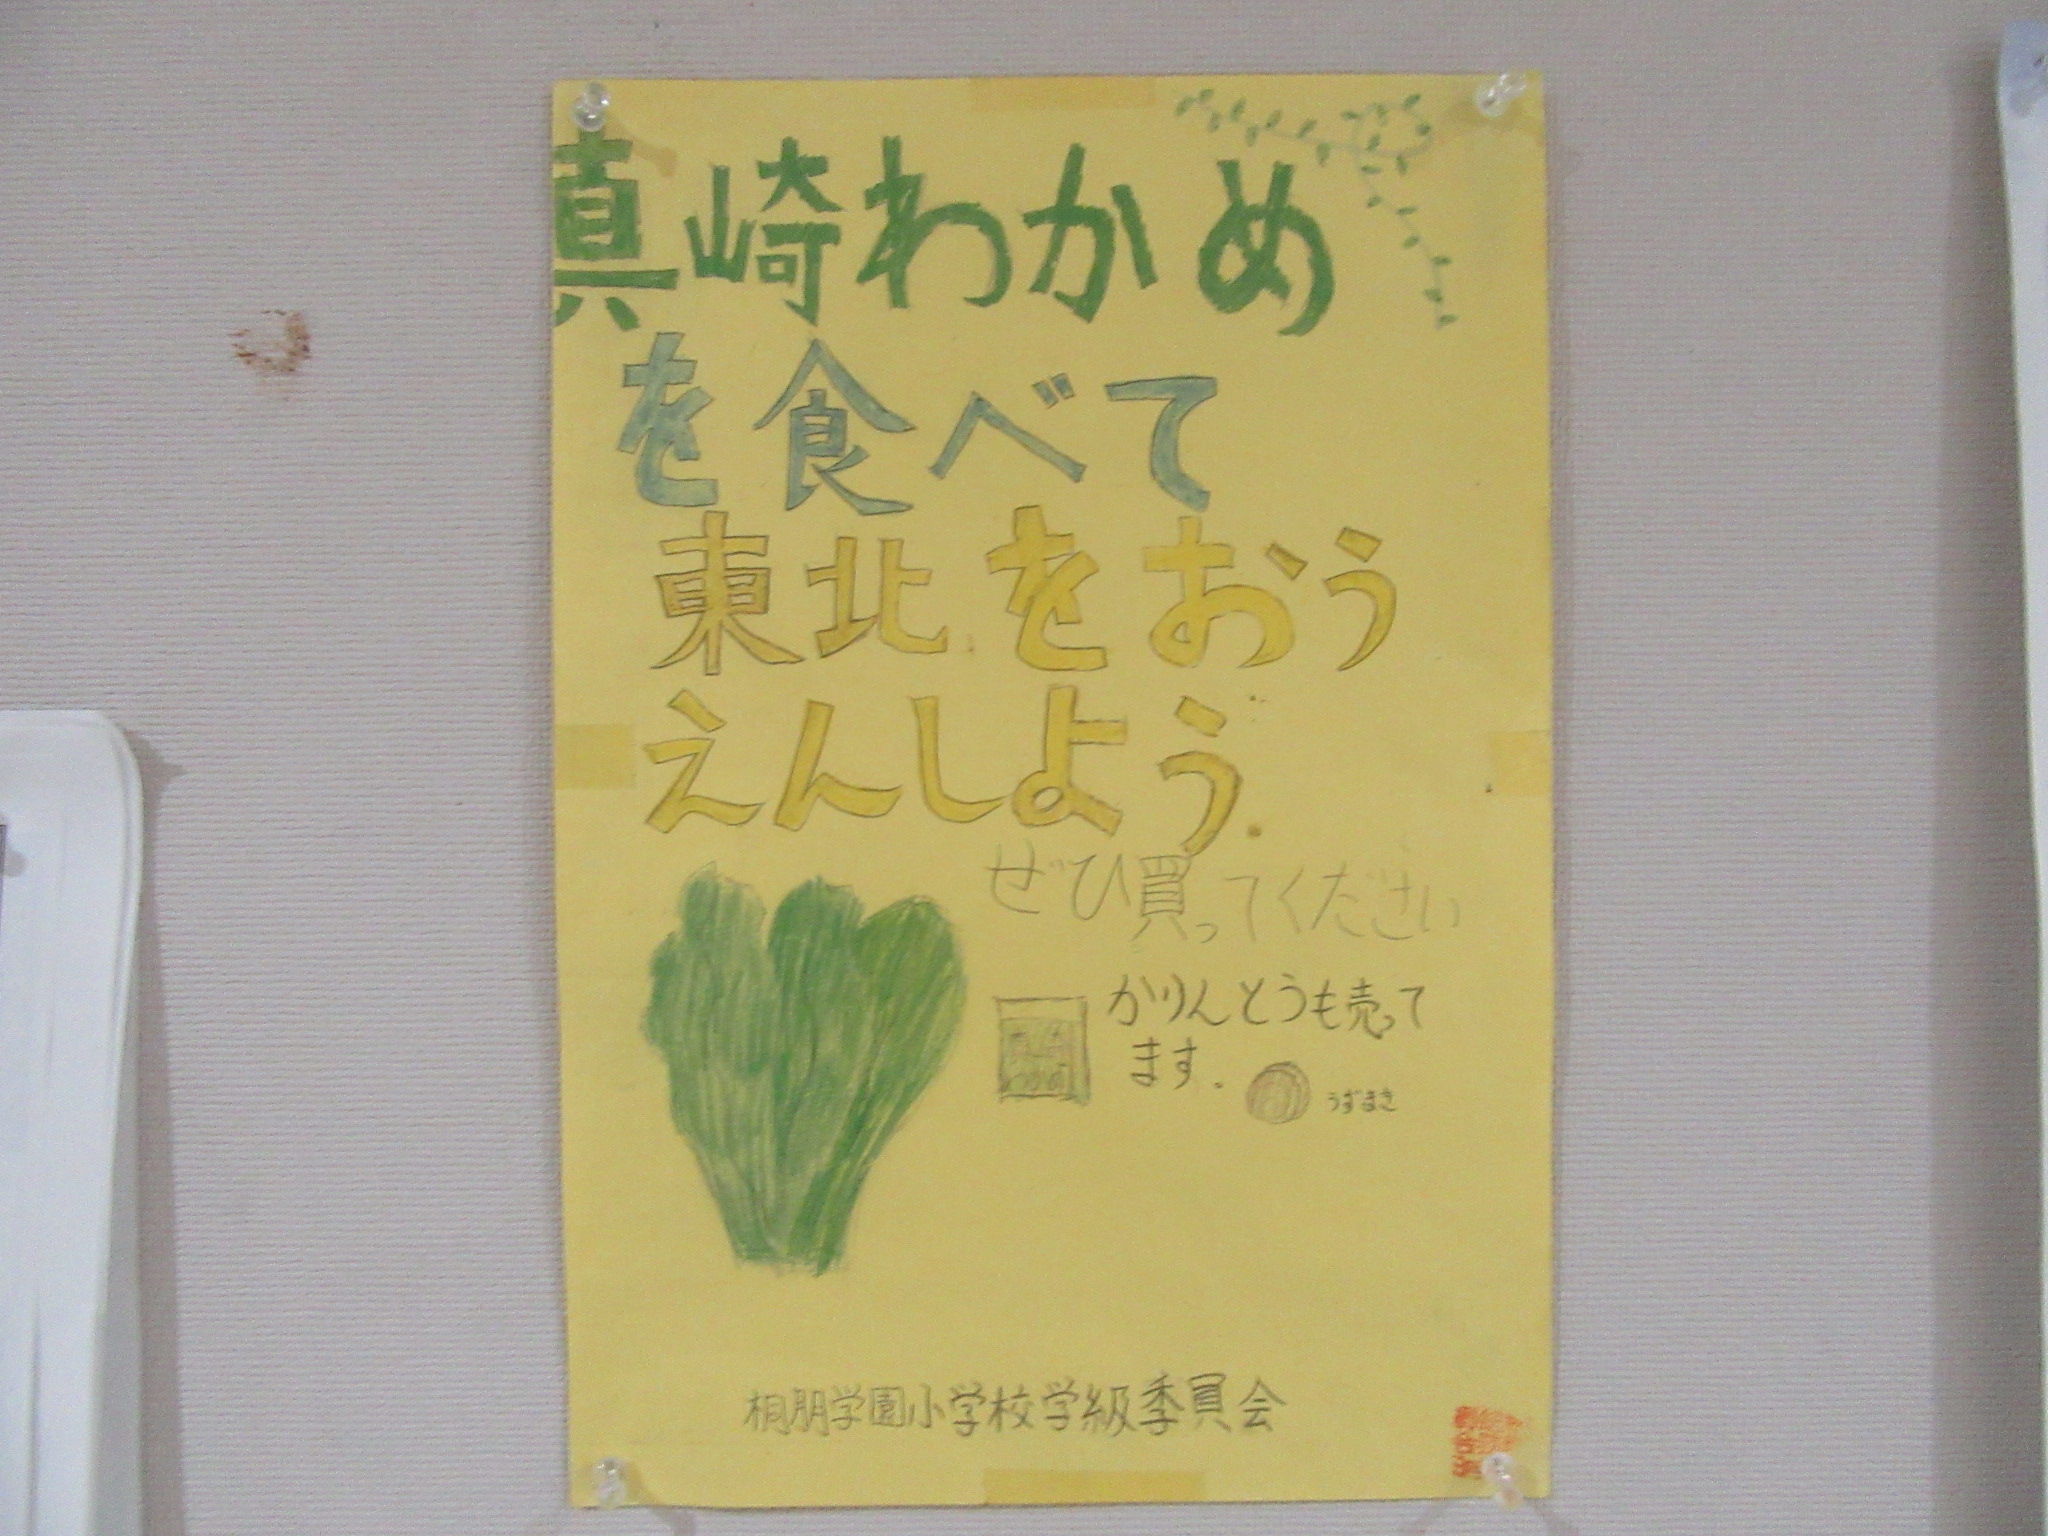 真崎わかめ
を食べて
東北をおう
えんしよう.
ぜひ買ってください
かりんとうも売って
ます.
うずまき
桐朋学園小学校学級委員会